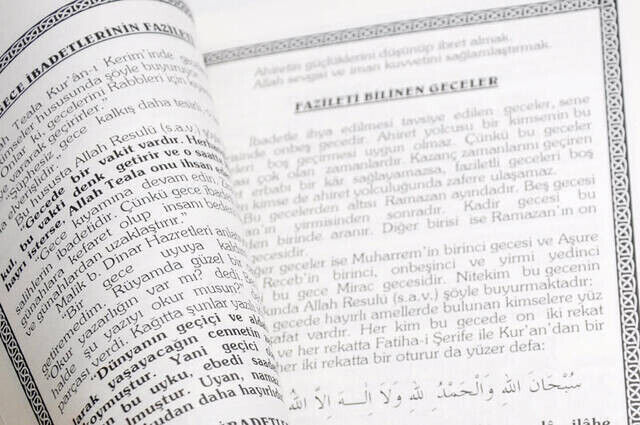 GECE İBADETLERİNİN FAZİLETİ
Teala Kur'ân-ı Kerim'inde
kimseler hususunda şöyle buyurmuştur:
Onlar ki gecelerini Rabbleri için
ve yararak geçirirler."
Şüphesiz gece kalkış daha tesirli
elverişlidir."
Bu hususta Allah Resulü (s.a.v.)
"Gecede bir vakit vardır. Herhangi
kul, bu vakti denk getirir ve o saatte
hayrı isterse, Allah Teala onu ihsan
"Gece kıyamına devam edin.
salihlerin ibadetidir. Çünkü gece
günahlara kefaret olup insanı
ve günahlardan uzaklaştırır."
Malik b. Dinar Hazretleri
"Bir gece uyuya
getiremedim. Rüyamda güzel bir
"Okur yazarlığın var mı? dedi.
halde şu yazıyı okur musun?
parçası verdi. Kağıtta şunlar
"Dünyanın geçici ve
olarak yaşayacağın cennetin
koymuştur. Yani geçici
bu uyku, ebedi
olmuştur. Uyan,
uykudan daha hayırlıdır
İBADETLERİ
Ahiretin güçlüklerini düşünüp ibret almak.
Allah sevgisi ve iman kuvvetini sağlamlaştırmak.
FAZİLETİ BİLİNEN GECELER
İbadetle ihya edilmesi tavsiye edilen geceler, sene
içinde onbeş gecedir. Ahiret yolcusu bir kimsenin bu
geceleri boş geçirmesi uygun olmaz. Çünkü bu geceler
kazancı çok olan zamanlardır. Kazanç zamanlarını geçiren
erbabı bir kâr sağlayamazsa, faziletli geceleri boş
kimse de ahiret yolculuğunda zafere ulaşamaz.
Bu gecelerden altısı Ramazan ayındadır. Beş gecesi
yirmisinden sonradır. Kadir gecesi bu
birinde aranır. Diğer birisi ise Ramazan'ın on
gecesidir.
Diğer geceler ise Muharrem'in birinci gecesi ve Aşure
Receb'in birinci, onbeşinci ve yirmi yedinci
bu gece Mirac gecesidir. Nitekim bu gecenin
hakkında Allah Resulü (s.a.v.) şöyle buyurmaktadır:
gecede hayırlı amellerde bulunan kimselere yüz
vardır. Her kim bu gecede on iki rekat
ve her rekatta Fatiha-i Şerife ile Kur'an'dan bir
her iki rekatta bir oturur da yüzer defa:
سُبْحَانَ اللهِ وَالْحَمْدُ لِلهِ وَلَا اِلٰهَ اِلَّا اللهُ
ilâhe